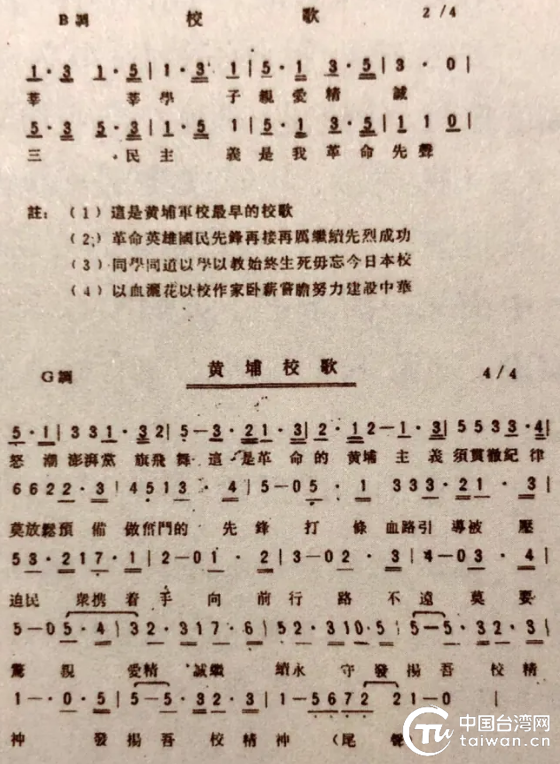 B調 校歌 2/4
1·3 1·5 | 1·3 1 | 5·1 3·5 | 3·0 |
莘 莘學 子親愛精 誠
5·3 5·3 | 1·5 1 | 5·1 3·5 | 1 1 0 |
三 ·民主 義是我革命先聲
註: (1) 這是黄埔軍校最早的校歌
(2) 革命英雄國民先鋒再接再厲繼續先烈成功
(3) 同學同道以學以教始終生死毋忘今日本校
(4) 以血灑花以校作家卧薪嘗膽努力建設中華
G調 黄埔校歌 4/4
5·1 | 3 3 1·3 2 | 5—3·2 1·3 | 2·1 2—1·3 | 5 5 3 3·4 |
怒潮澎湃黨旗飛舞這是革命的黄埔主義須貫徹紀律
6 6 2 2·3 | 4 5 1 3·4 | 5—0 5·1 3 3 3·2 1·3 |
莫放鬆預備做奮鬥的先鋒打條血路引導被壓
5 3·2 1 7·1 | 2—0 1·2 | 3—0 2·3 | 4—0 3·4 |
迫民衆携着手向前行路不遠莫要
5—0 5·4 | 3 2·3 1 7·6 | 5 2·3 1 0·5 | 5—5·3 2·3 |
驚親愛精誠繼續永守發揚吾校精
1—·0·5 | 5—5·3 2·3 | 1—5 6 7 2 2 2 1—0 |
神發揚吾校精神(尾聲
中国台湾网
taiwan.cn